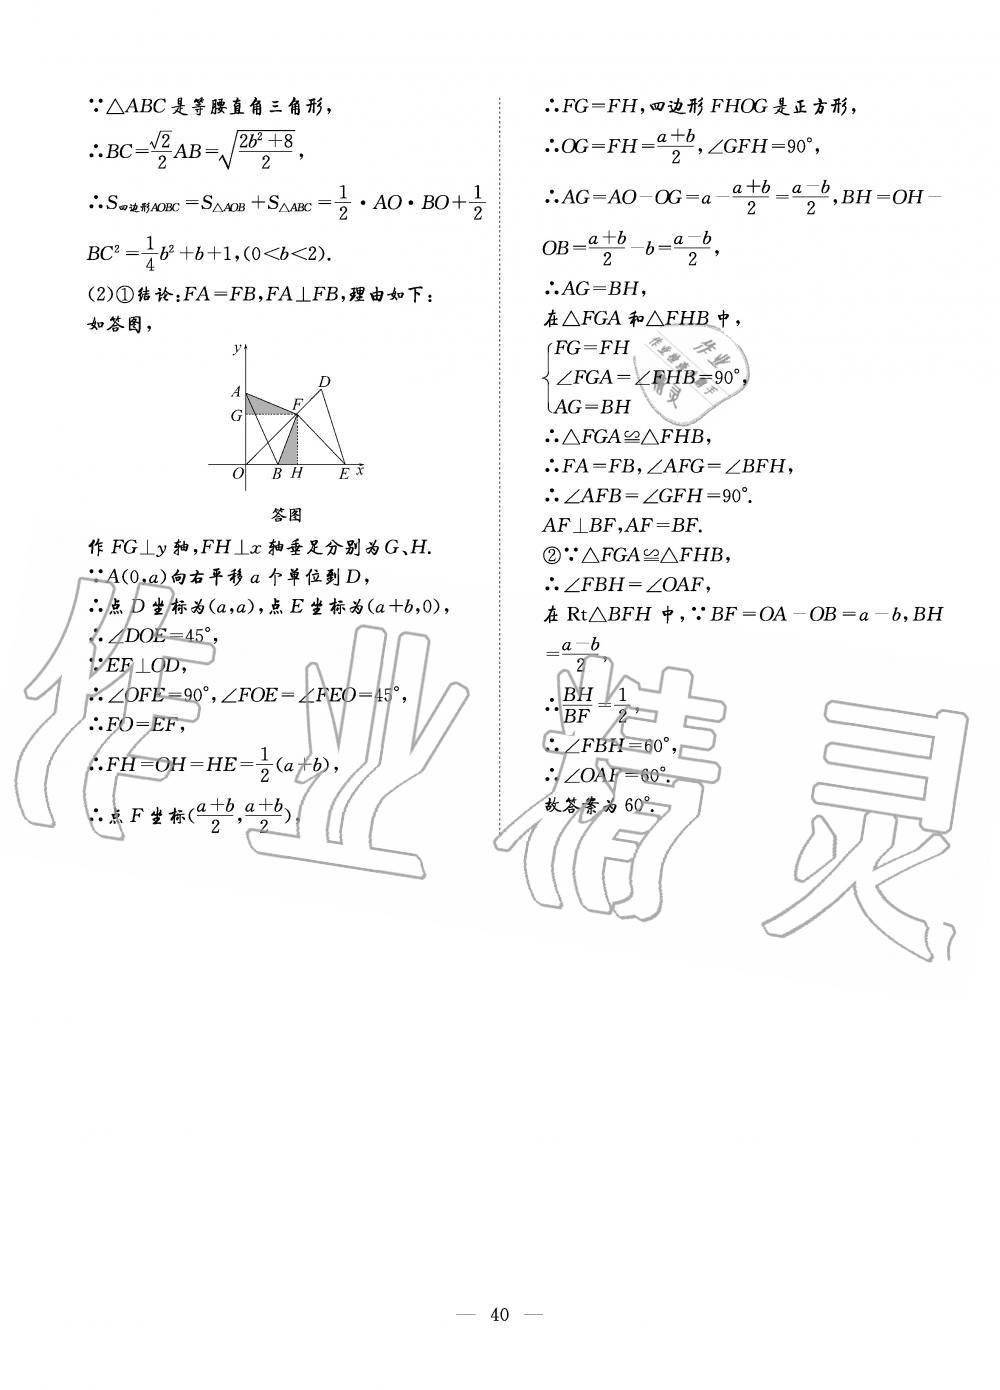 ∵△ABC是等腰直角三角形，
∴BC=√2/2 AB=√((2b²+8)/2)，
∴S四边形AOBC=S△AOB+S△ABC=1/2·AO·BO+1/2
BC²=1/4b²+b+1,(0<b<2).
(2)①结论:FA=FB,FA⊥FB,理由如下：
如答图，
y
A
D
F
G
O B H E x
答图
作FG⊥y轴,FH⊥x轴垂足分别为G、H.
∵A(0,a)向右平移a个单位到D，
∴点D坐标为(a,a),点E坐标为(a+b,0)，
∴∠DOE=45°，
∵EF⊥OD，
∴∠OFE=90°,∠FOE=∠FEO=45°，
∴FO=EF，
∴FH=OH=HE=1/2(a+b)，
∴点F坐标((a+b)/2,(a+b)/2)，
∴FG=FH,四边形FHOG是正方形，
∴OG=FH=(a+b)/2,∠GFH=90°，
∴AG=AO-OG=a-(a+b)/2=(a-b)/2,BH=OH-
OB=(a+b)/2-b=(a-b)/2，
∴AG=BH，
在△FGA和△FHB中，
FG=FH
∠FGA=∠FHB=90°，
AG=BH
∴△FGA≌△FHB，
∴FA=FB,∠AFG=∠BFH，
∴∠AFB=∠GFH=90°.
AF⊥BF,AF=BF.
②∵△FGA≌△FHB，
∴∠FBH=∠OAF，
在Rt△BFH中,∵BF=OA-OB=a-b,BH
=(a-b)/2，
∴BH/BF=1/2，
∴∠FBH=60°，
∴∠OAF=60°.
故答案为60°.
作业精灵
— 40 —